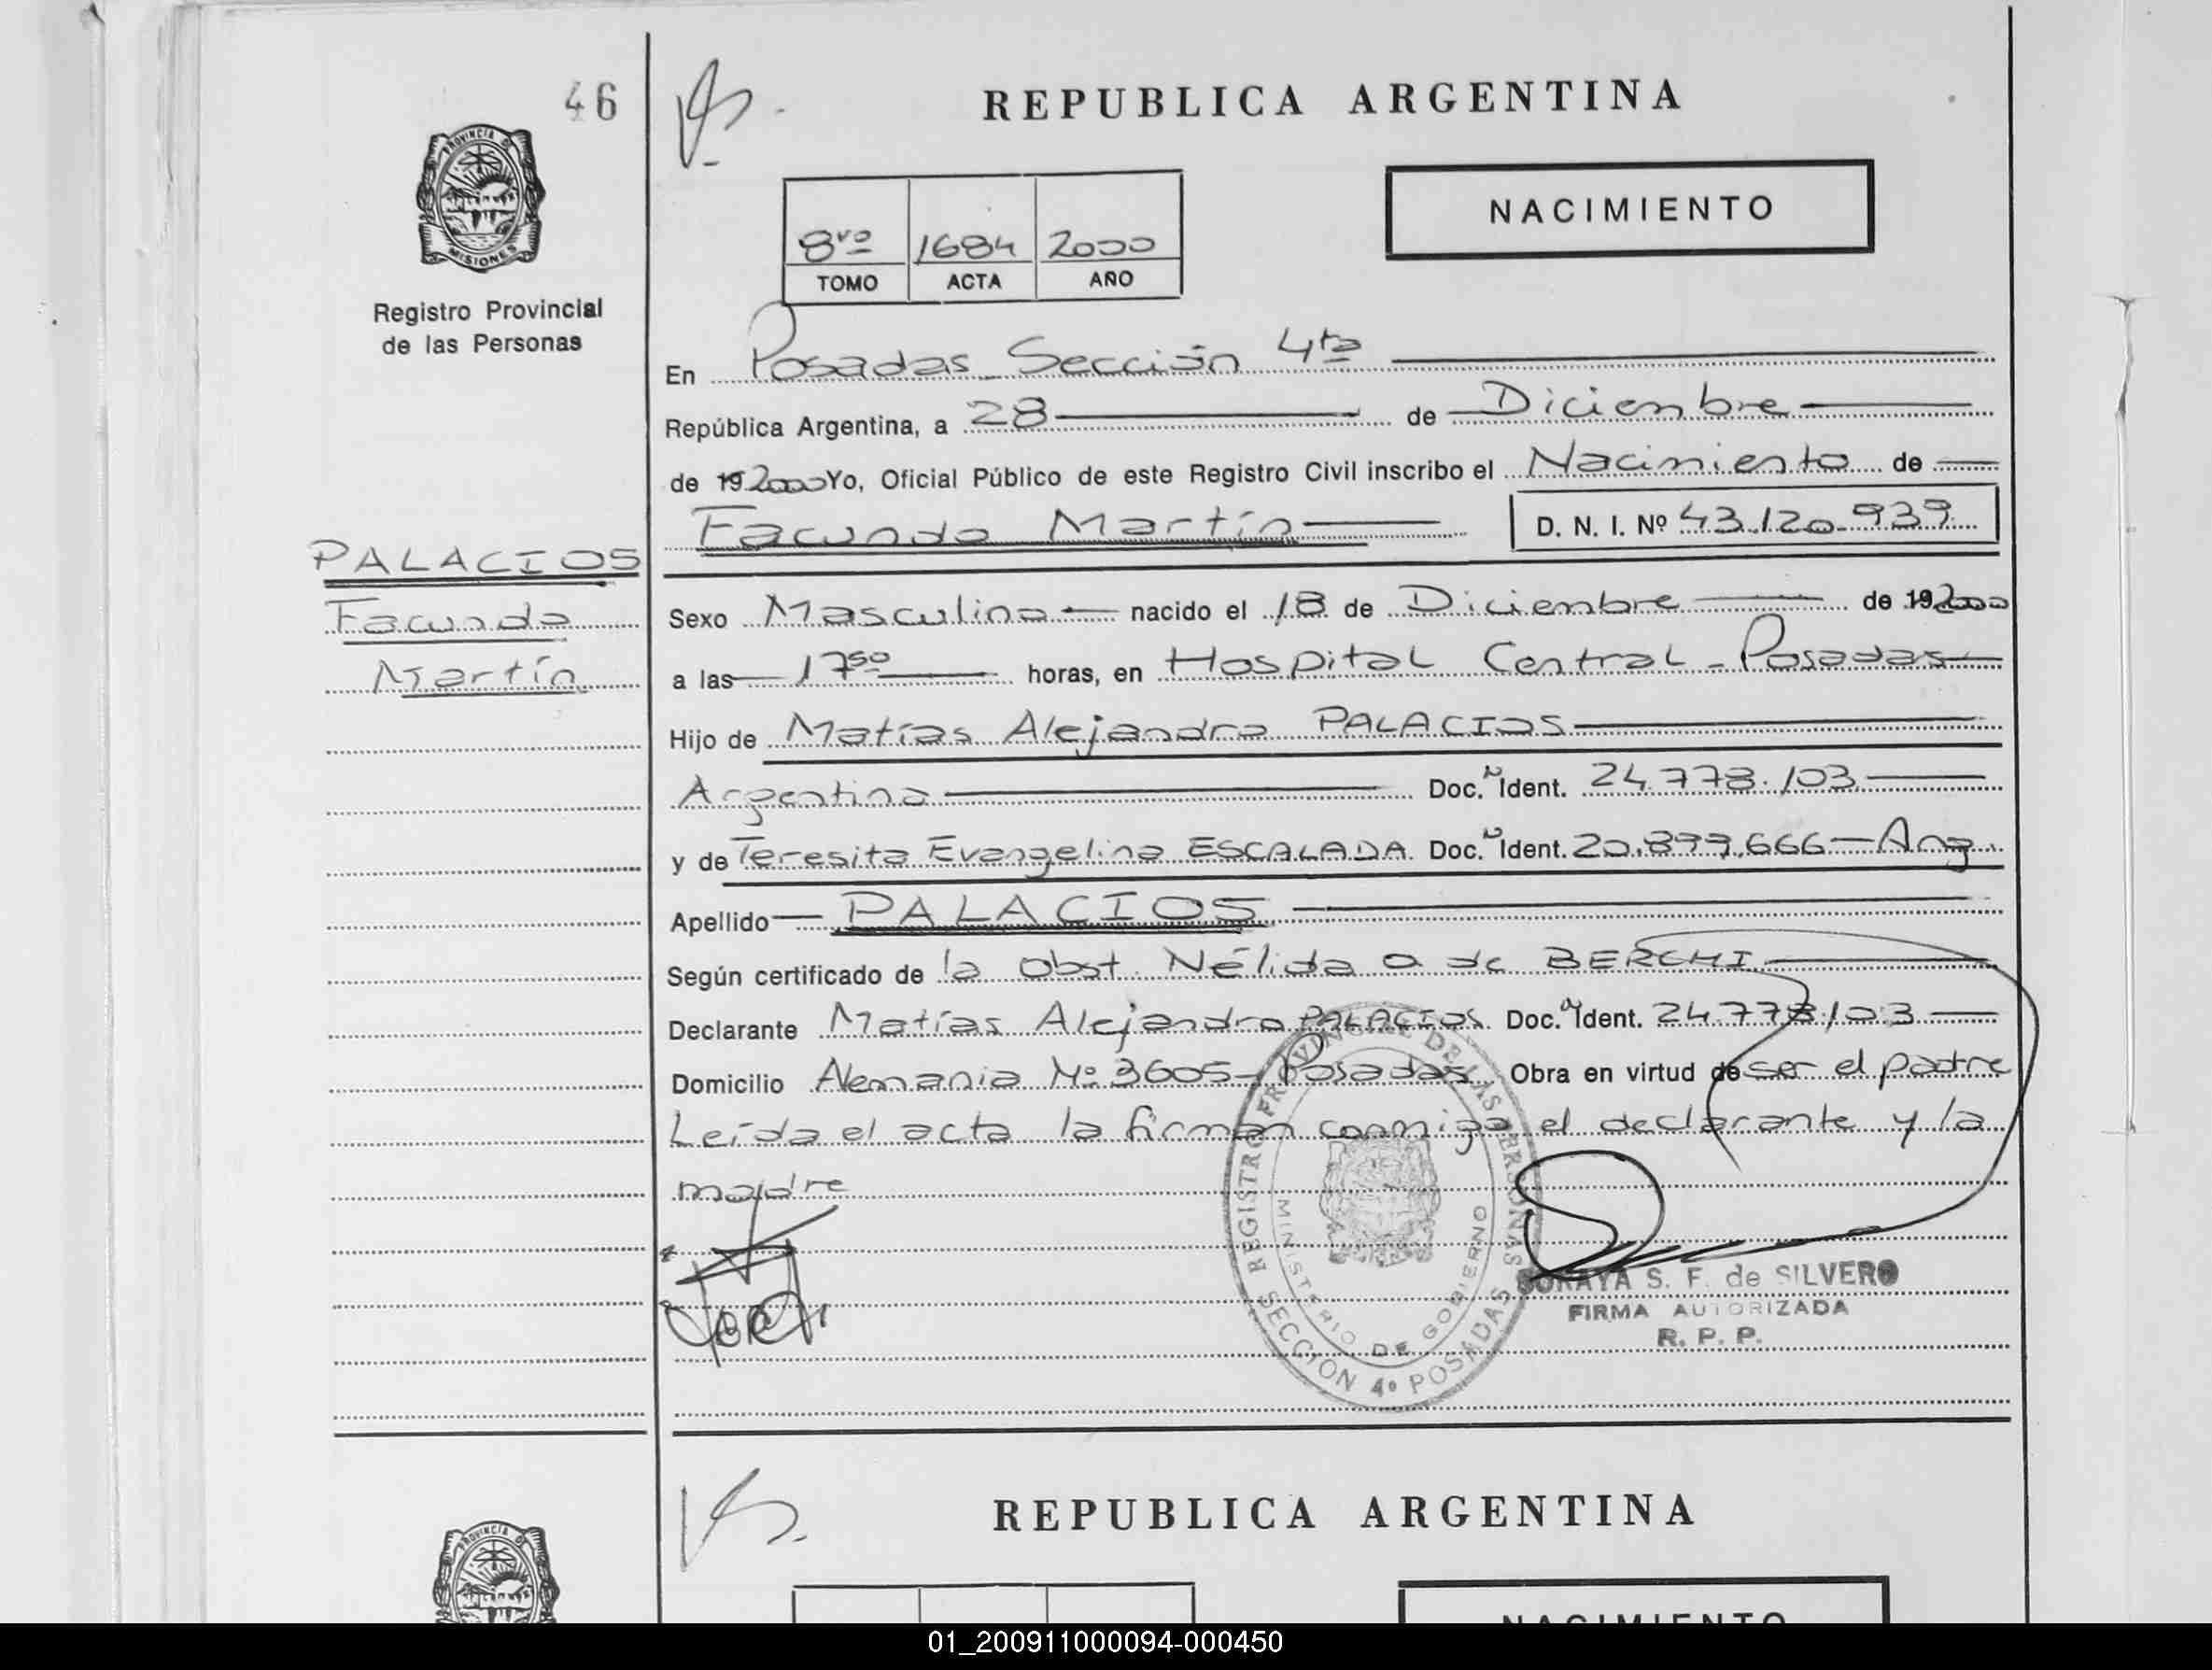 46
REPUBLICA ARGENTINA
PROVINCIA DE
MISIONES
NACIMIENTO
8vo 1684 2000
TOMO ACTA AÑO
Registro Provincial
de las Personas
En Posadas Sección 4ta
República Argentina, a 28 de Diciembre
de 19 2000 Yo, Oficial Público de este Registro Civil inscribo el Nacimiento de
Facundo Martín D. N. I. Nº 43.120.939
PALACIOS
Facundo
Martín
Sexo Masculino nacido el 18 de Diciembre de 19 2000
a las 17 50 horas, en Hospital Central - Posadas
Hijo de Matías Alejandro PALACIOS
Argentino Doc. N Ident. 24.778.103
y de Teresita Evangelina ESCALADA Doc. N Ident. 20.899.666 - Arg.
Apellido PALACIOS
Según certificado de la Obst. Nélida O de BERCHI
Declarante Matías Alejandro PALACIOS Doc. N Ident. 24.778.103
Domicilio Alemania Nº 3605 - Posadas Obra en virtud de ser el padre
Leída el acta la firman conmigo el declarante y la
madre
REGISTRO PROVINCIAL DE LAS PERSONAS
MINISTERIO DE GOBIERNO
SECCION 4º POSADAS
SORAYA S. F. de SILVERO
FIRMA AUTORIZADA
R. P. P.
REPUBLICA ARGENTINA
PROVINCIA DE
NACIMIENTO
01_200911000094-000450